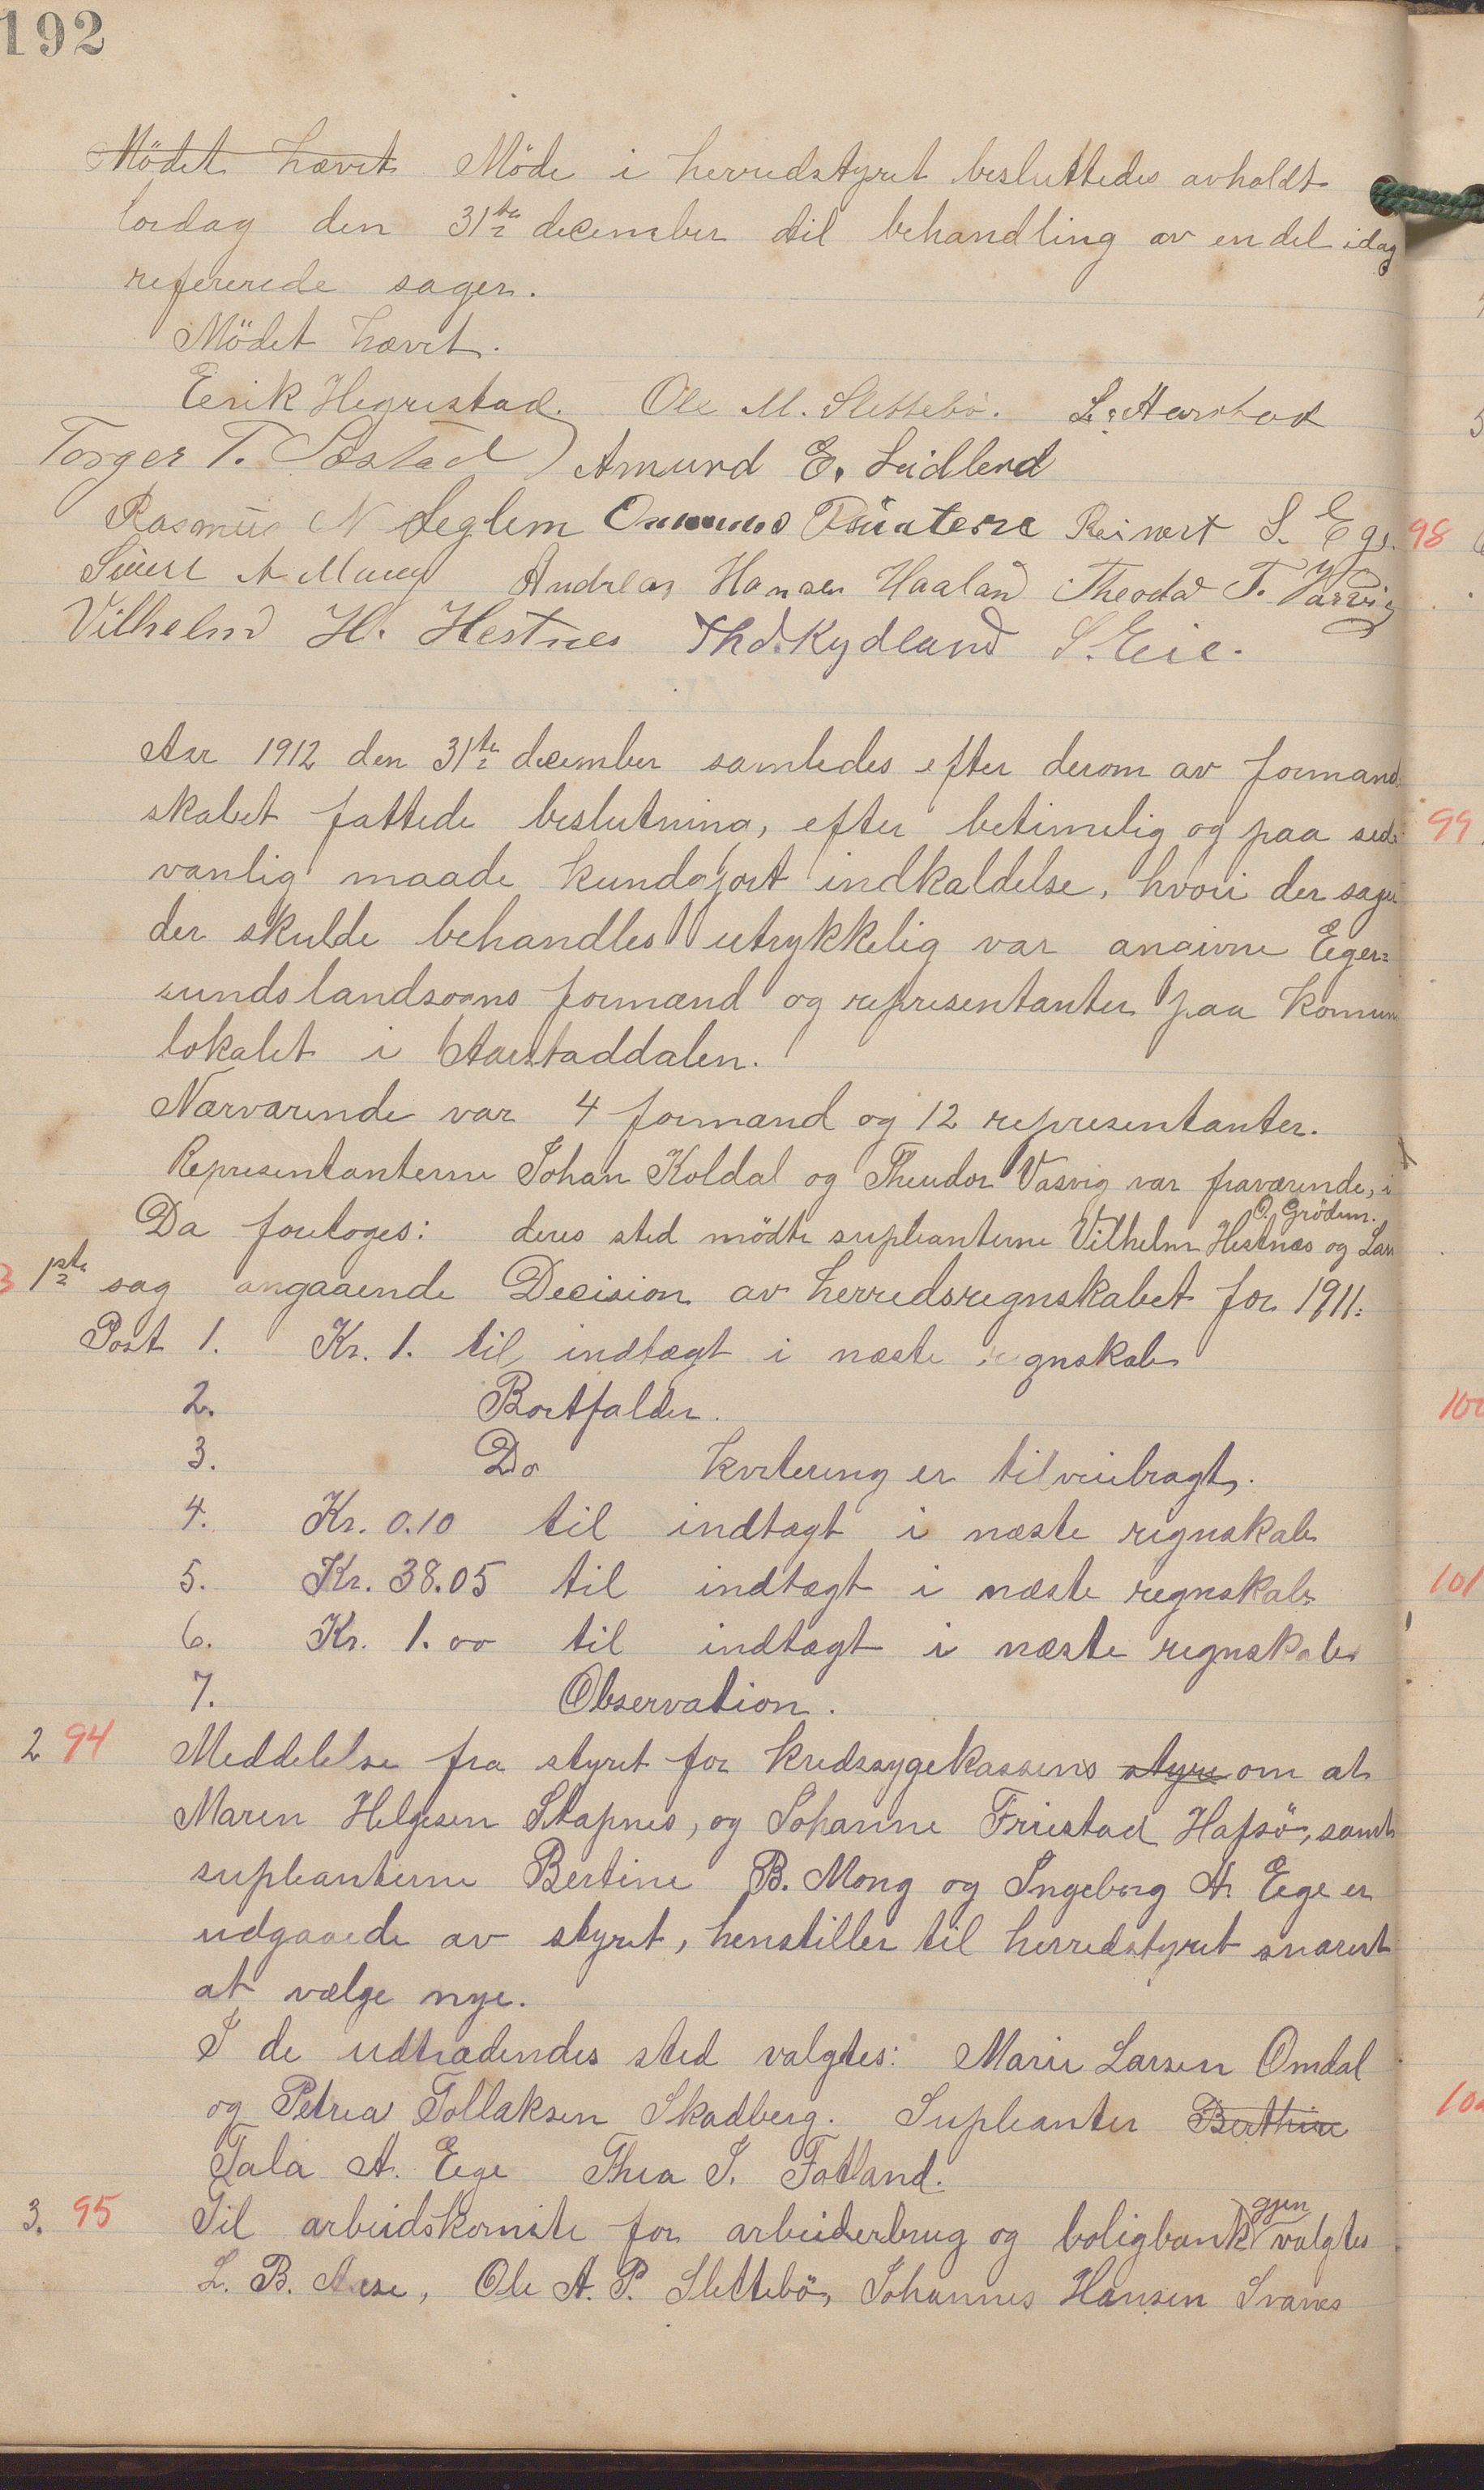 192
Mödet hævet Möde i herredstyret besluttedes avholdt
lördag den 31te december til behandling av en del idag
refererede sager.
Mödet hævet.
Eerik Hegrestad. Ole M. Slettebö. L. Aarstad
Torger T. Sæstad Amund E. Leidland
Rasmus N Seglem Reinert S. Ege.
Sivert A Mong Andreas Hansen Haaland Theodor T. Vasvig
Vilhelm H. Hestnes Thd. Kydland S. Eie.
Aar 1912 den 31te december samledes efter derom av formand-
skabet fattede beslutning, efter betimelig og paa sed-
vanlig maade kundgjort indkaldelse, hvori der sager
der skulde behandles utrykkelig var angivne Eger=
sunds landsogns formænd og representanter paa komune
lokalet i Aarstaddalen.
Nærværende var 4 formænd og 12 representanter.
Representanterne Johan Koldal og Theodor Vasvig var fraværende, i
O. Grödem.
Da foretoges: deres sted mödte supleanterne Vilhelm Hestnæs og Lars
3 1ste sag angaaende Decision av herredsregnskabet for 1911.
Post 1. Kr. 1. til indtægt i næste regnskab
2. Bortfalder.
3. Do kvitering er tilveiebragt.
4. Kr. 0.10 til indtægt i næste regnskab
5. Kr. 38.05 til indtægt i næste regnskab
6. Kr. 1.00 til indtægt i næste regnskab
7. Observation.
2 94 Meddelelse fra styret for kredssygekassens styre om at
Maren Helgesen Stapnes, og Johanne Friestad Hafsö, samt
supleanterne Bertine B. Mong og Ingeborg A. Ege er
udgaaede av styret, henstiller til herredstyret snarest
at vælge nye.
I de udtrædendes sted valgtes: Marie Larsen Omdal
og Petrea Tollaksen Skadberg. Supleanter Berthine
Tala A. Ege Thea I. Fotland.
3. 95 Til arbeidskomite for arbeiderbrug og boligbank gjen valgtes
L. B. Aase, Ole A. P. Slettebö, Johannes Hansen Svanes
98
99
100
101
102